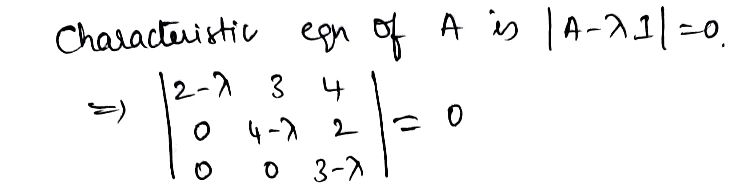 Characteristic eqn of A is |A-λI|=0.
⇒ | 2-λ 3 4 |
| 0 4-λ 2 | = 0
| 0 0 3-λ |